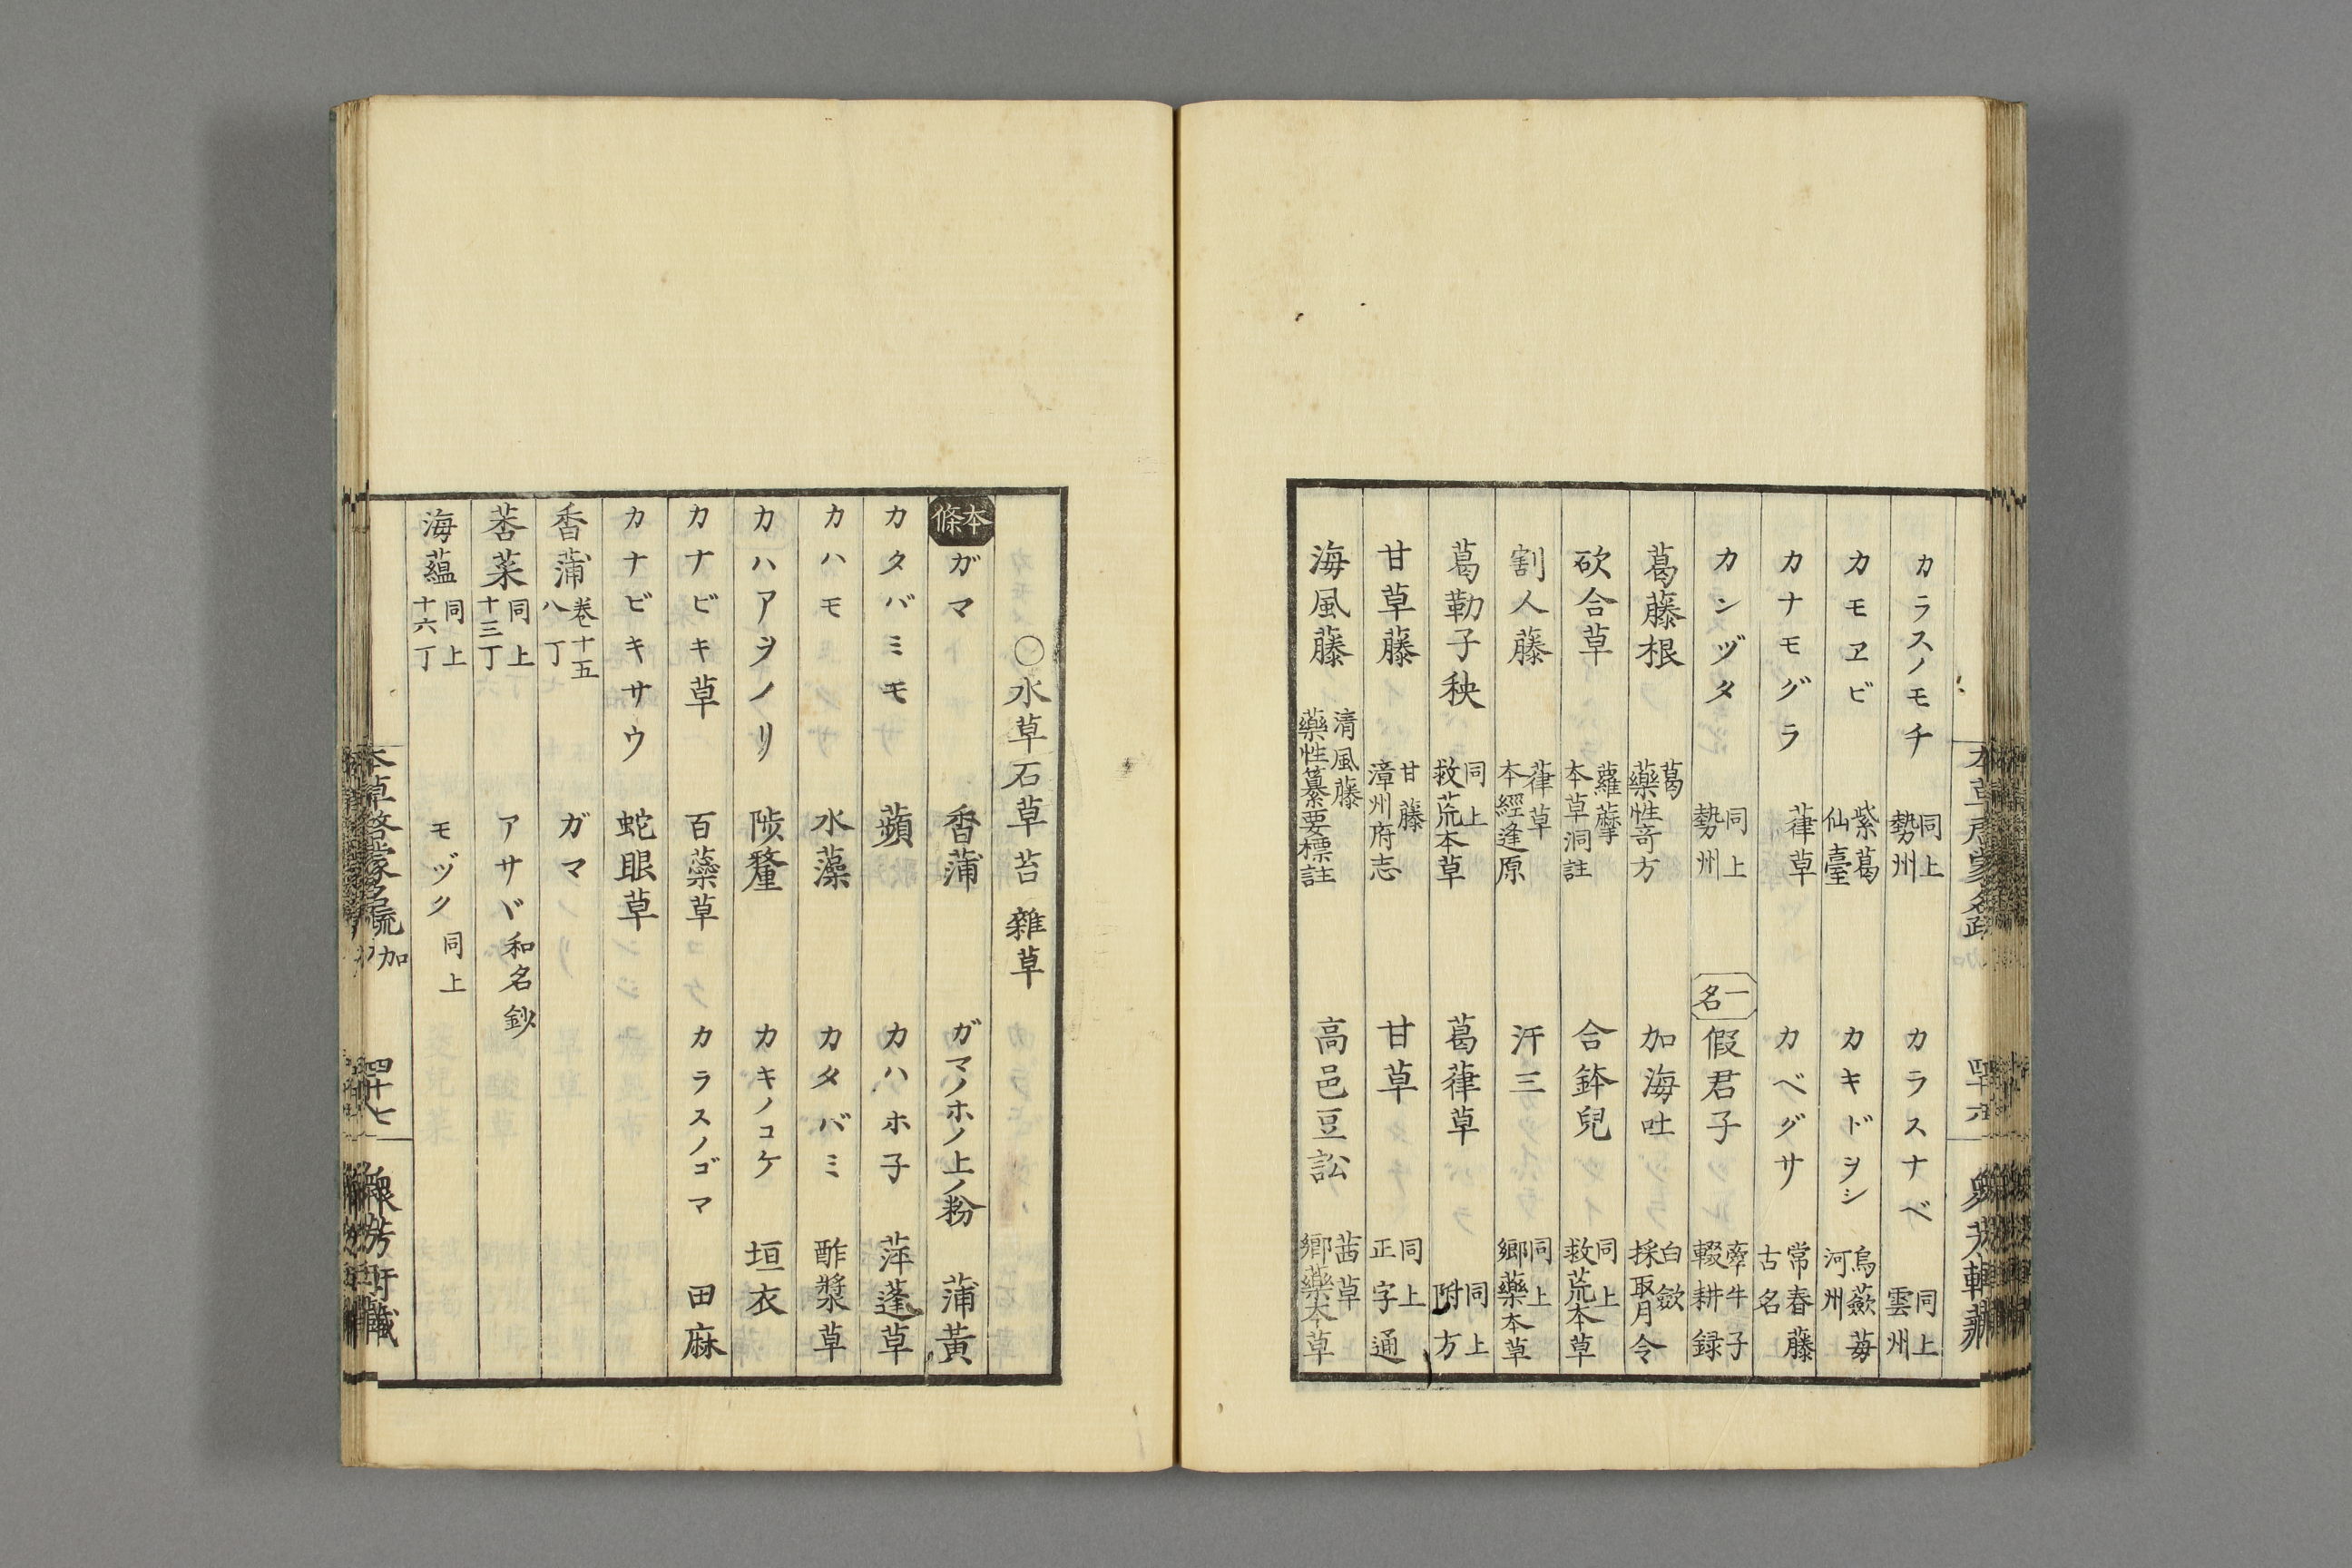 カラスノモチ 同上 勢州 カラスナベ 同上 雲州
カモヱビ 紫葛 仙臺 カキドヲシ 烏蘞苺 河州
カナモグラ 葎草 カベグサ 常春藤 古名
カンヅタ 同上 勢州 一名 假君子 牽牛子 輟耕録
葛藤根 葛 藥性竒方 加海吐 白蘞 採取月令
砍合草 蘿藦 本草洞詮 合鉢兒 同上 救荒本草
割人藤 葎草 本經逢原 汗三 同上 郷藥本草
葛勒子秧 同上 救荒本草 葛葎草 同上 附方
甘草藤 甘藤 漳州府志 甘草 同上 正字通
海風藤 清風藤 藥性纂要標註 高邑豆訟 茜草 郷藥本草
○水草石草苔 雜草
本條 ガマ 香蒲 ガマノホノ上ノ粉 蒲黃
カタバミモ 蘋 カハホ子 萍蓬草
カハモ 水藻 カタバミ 酢漿草
カハアヲノリ 陟釐 カキノコケ 垣衣
カナビキ草 百蘂草 カラスノゴマ 田麻
カナビキサウ 蛇眼草
香蒲 卷十五 八丁 ガマ
莕菜 同上 十三丁 アサヾ 和名鈔
海蘊 同上 十六丁 モヅク 同上
本草啓蒙名疏 加 四十七 衆芳軒藏